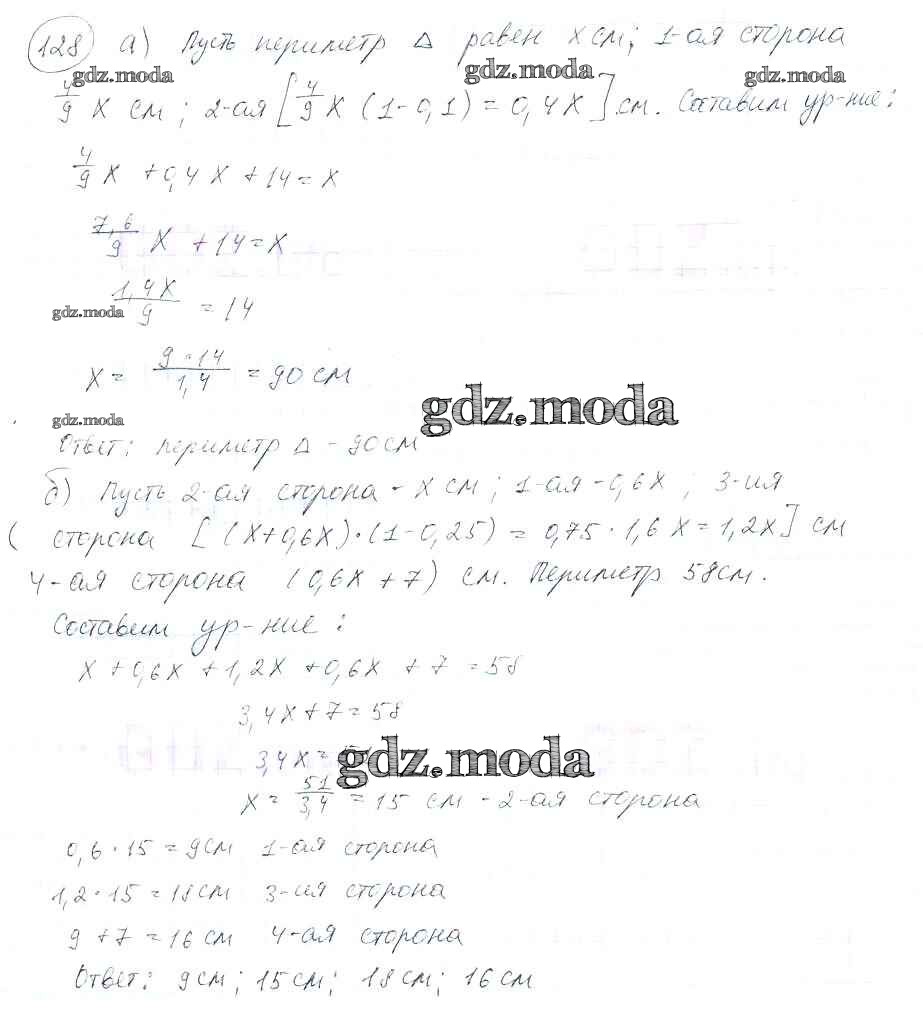 128 а) Пусть периметр Δ равен x см; 1-ая сторона
gdz.moda gdz.moda gdz.moda
4/9 x см; 2-ая [4/9 x (1-0,1) = 0,4x] см. Составим ур-ние:
4/9 x + 0,4x + 14 = x
7,6/9 x + 14 = x
1,4x/9 = 14
gdz.moda
x = 9·14/1,4 = 90 см
gdz.moda
gdz.moda
Ответ: периметр Δ - 90 см
б) Пусть 2-ая сторона - x см; 1-ая - 0,6x; 3-ия
( сторона [(x+0,6x)·(1-0,25) = 0,75·1,6x = 1,2x] см
4-ая сторона (0,6x + 7) см. Периметр 58см.
Составим ур-ние:
x + 0,6x + 1,2x + 0,6x + 7 = 58
3,4x + 7 = 58
3,4x =
gdz.moda
x = 51/3,4 = 15 см - 2-ая сторона
0,6·15 = 9см 1-ая сторона
1,2·15 = 18см 3-ия сторона
9 + 7 = 16 см 4-ая сторона
Ответ: 9см; 15см; 18см; 16см